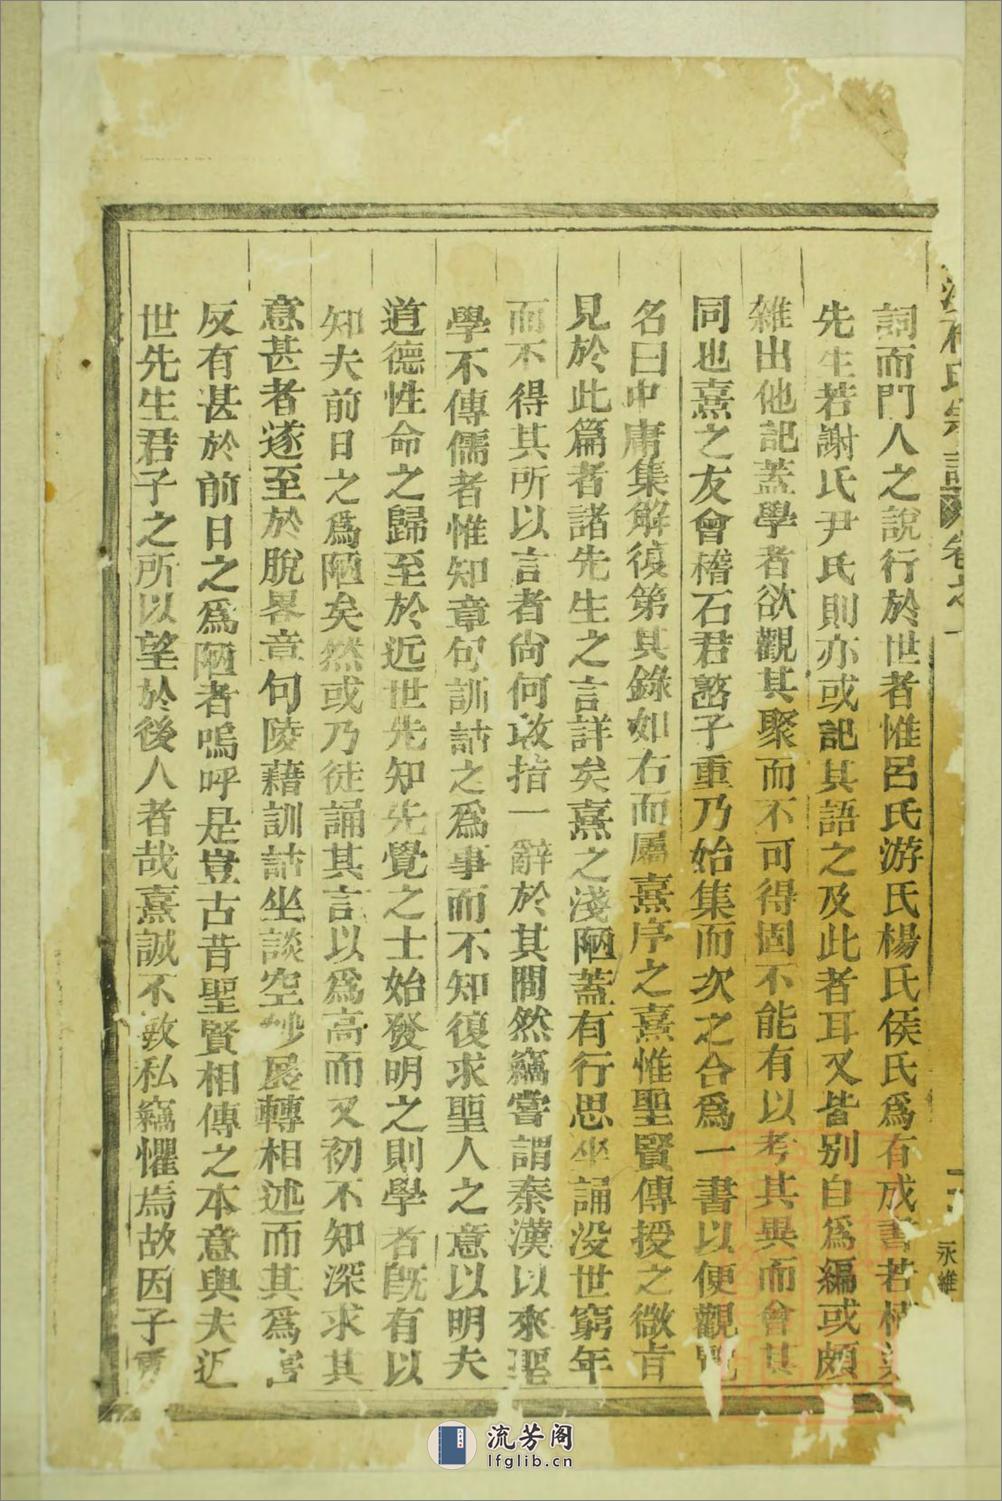 詞而門人之說行於世者惟呂氏游氏楊氏侯氏爲有成書若
先生若謝氏尹氏則亦或記其語之及此者耳又皆別自爲編或頗
雜出他記蓋學者欲觀其聚而不可得固不能有以考其異而會其
同也熹之友會稽石君𡼖子重乃始集而次之合爲一書以便觀
名曰中庸集解復第其錄如右而屬熹序之熹惟聖賢傳授之微旨
見於此篇者諸先生之言詳矣熹之淺陋蓋有行思坐誦没世窮年
而不得其所以言者尙何敢指一辭於其間然竊嘗謂秦漢以來聖
學不傳儒者惟知章句訓詁之爲事而不知復求聖人之意以明夫
道德性命之歸至於近世先知先覺之士始發明之則學者旣有以
知夫前日之爲陋矣然或乃徒誦其言以爲高而又初不知深求其
意甚者遂至於脫畧章句陵藉訓詁坐談空妙展轉相述而其爲害
反有甚於前日之爲陋者嗚呼是豈古昔聖賢相傳之本意與夫近
世先生君子之所以望於後人者哉熹誠不敏私竊懼焉故因子重
氏宗譜 卷之一
永維
流芳阁
lfglib.cn